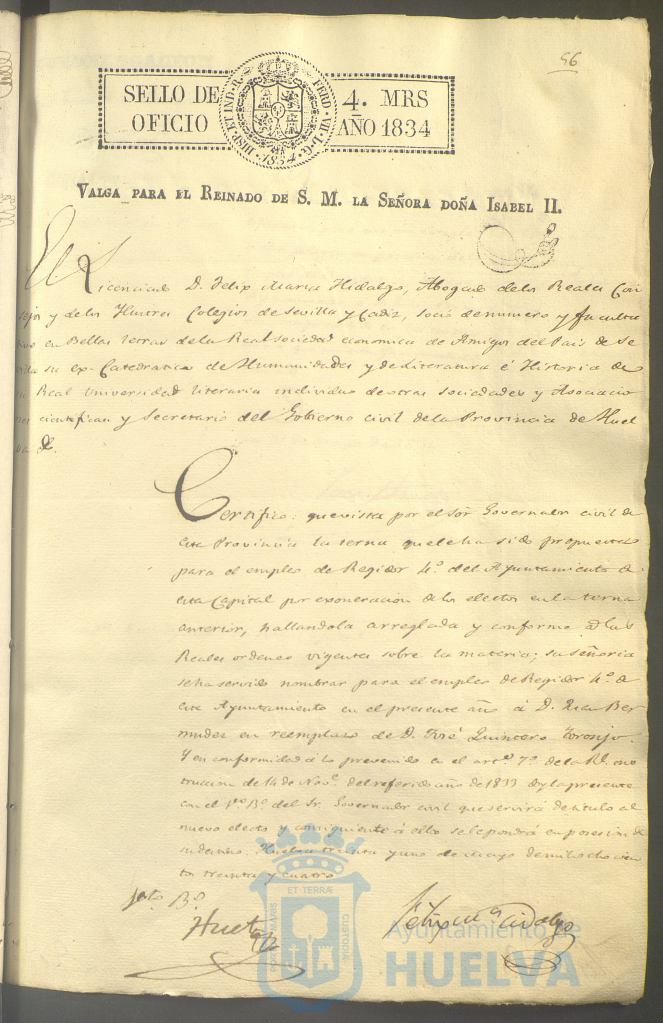 56
SELLO DE OFICIO
4. MRS
AÑO 1834
HISP. ET IND. R. FERD. VII. D. G. 1834
VALGA PARA EL REINADO DE S. M. LA SEÑORA DOÑA ISABEL II.
El Licenciado D. Felix Maria Hidalgo, Abogado de los Reales Con
sejos y de los Ilustres Colegios de Sevilla y Cadiz, socio de numero y faculta
tivo en Bellas letras de la Real sociedad economica de Amigos del Pais de Se
villa su ex-Catedratico de Humanidades y de Literatura é Historia de
su Real Universidad literaria individuo de otras sociedades y Asociacio
nes cientificas y Secretario del Gobierno civil de la Provincia de Huel
va &.
Certifico: que vista por el Sor. Governador civil de
esta Provincia la terna que le ha sido propuesta
para el empleo de Regidor 4.º del Ayuntamiento de
esta Capital por exoneracion de los electos en la terna
anterior, hallandola arreglada y conforme á las
Reales ordenes vigentes sobre la materia; su señoria
se ha servido nombrar para el empleo de Regidor 4.º de
este Ayuntamiento en el presente año á D. Ber
mudez en reemplazo de D. José Quintero Toronjo.
Y en conformidad á lo prevenido en el arto. 7.º de la Rl. ins
truccion de 14 de Nove. del referido año de 1833 doy la presente
con el Vto. Bo. del Sr. Governador civil que servirá de titulo al
nuevo electo y consiguiente á ello se le pondrá en posesion de
su destino. Huelva treinta y uno de mayo de mil ochocien
tos treinta y cuatro
Vto. Bo.
Huet
Felix Ma. Hidalgo
ET TERRÆ
CUSTODIA
PORTUS MARIS
Ayuntamiento de
HUELVA